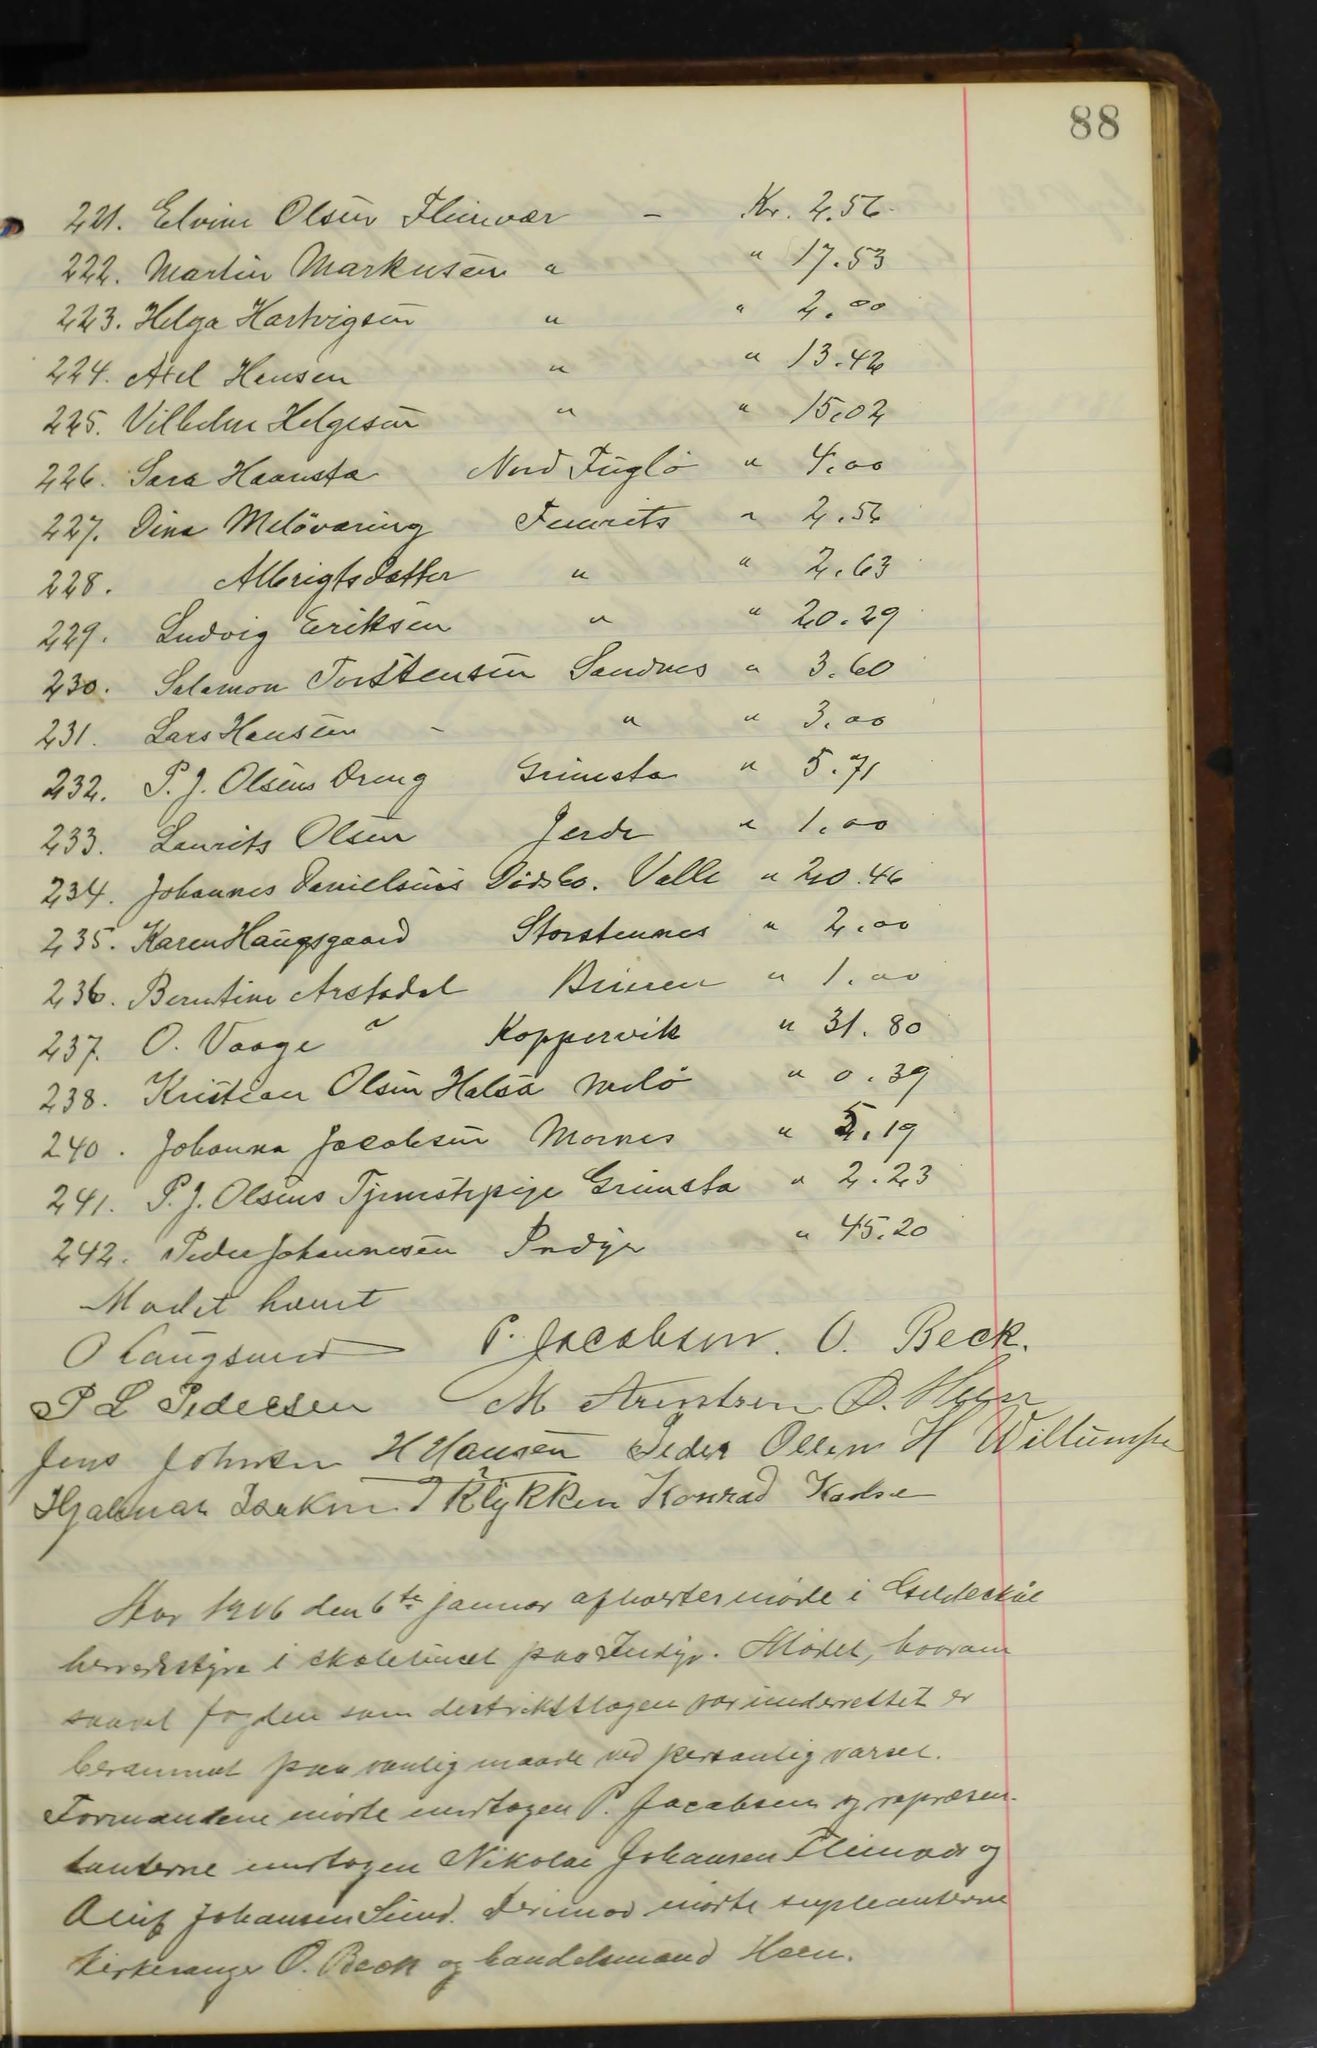 88
221. Elvine Olsen Fleinvær - Kr. 2.56
222. Martin Markusen " " 17.53
223. Helga Hartvigsen " " 2.00
224. Axel Hensen " " 13.42
225. Vilhelm Helgesen " " 15.02
226. Sara Haansta Nord Fuglö " 4.00
227. Dina Melöværing " 2.56
228. Albrigtsdatter " " 2.63
229. Ludvig Eriksen " " 20.29
230. Salamon Torstensen Sandnes " 3.60
231. Lars Hansen - " " 3.00
232. P. J. Olsens Dreng Grimsta " 5.71
233. Laurits Olsen Jerde " 1.00
234. Johannes Danielsens Dödsbo. Valle " 20.46
235. Karen Haugsgaard Storstennes " 2.00
236. Berntine Arstadal " 1.00
237. O. Vaage Koppervik " 31.80
238. Kristian Olsen Halsa Melö " 0.39
240. Johanna Jacobsen Mornes " 5.19
241. P. J. Olsens Tjenstepige Grimsta " 2.23
242. Peder Johannesen Indyr " 45.20
Mødet hævet
O Langsund P. Jacobsen. O. Beck.
P L Pedersen M Arentsen O. Heen
Jens Johnsen H Hansen Peder Olsen H Willumsen
Hjalmar Isaksen I Klykken Konrad Karlsen
Aar 1906 den 6te januar afholdtes möde i Gildeskål
herredstyre i skolehuset paa Indyr. Mödet, hvorom
saavel fogden som destriktslægen var underrettet er
berammet paa vanlig maade ved personlig varsel.
Formændene mödte undtagen P. Jacobsen og repræsen-
tanterne undtagen Nikolai Johansen Fleinvær og
Oluf Johansen Sund. Derimod mödte supleanterne
kirkesanger O. Beck og handelsmand Heen.